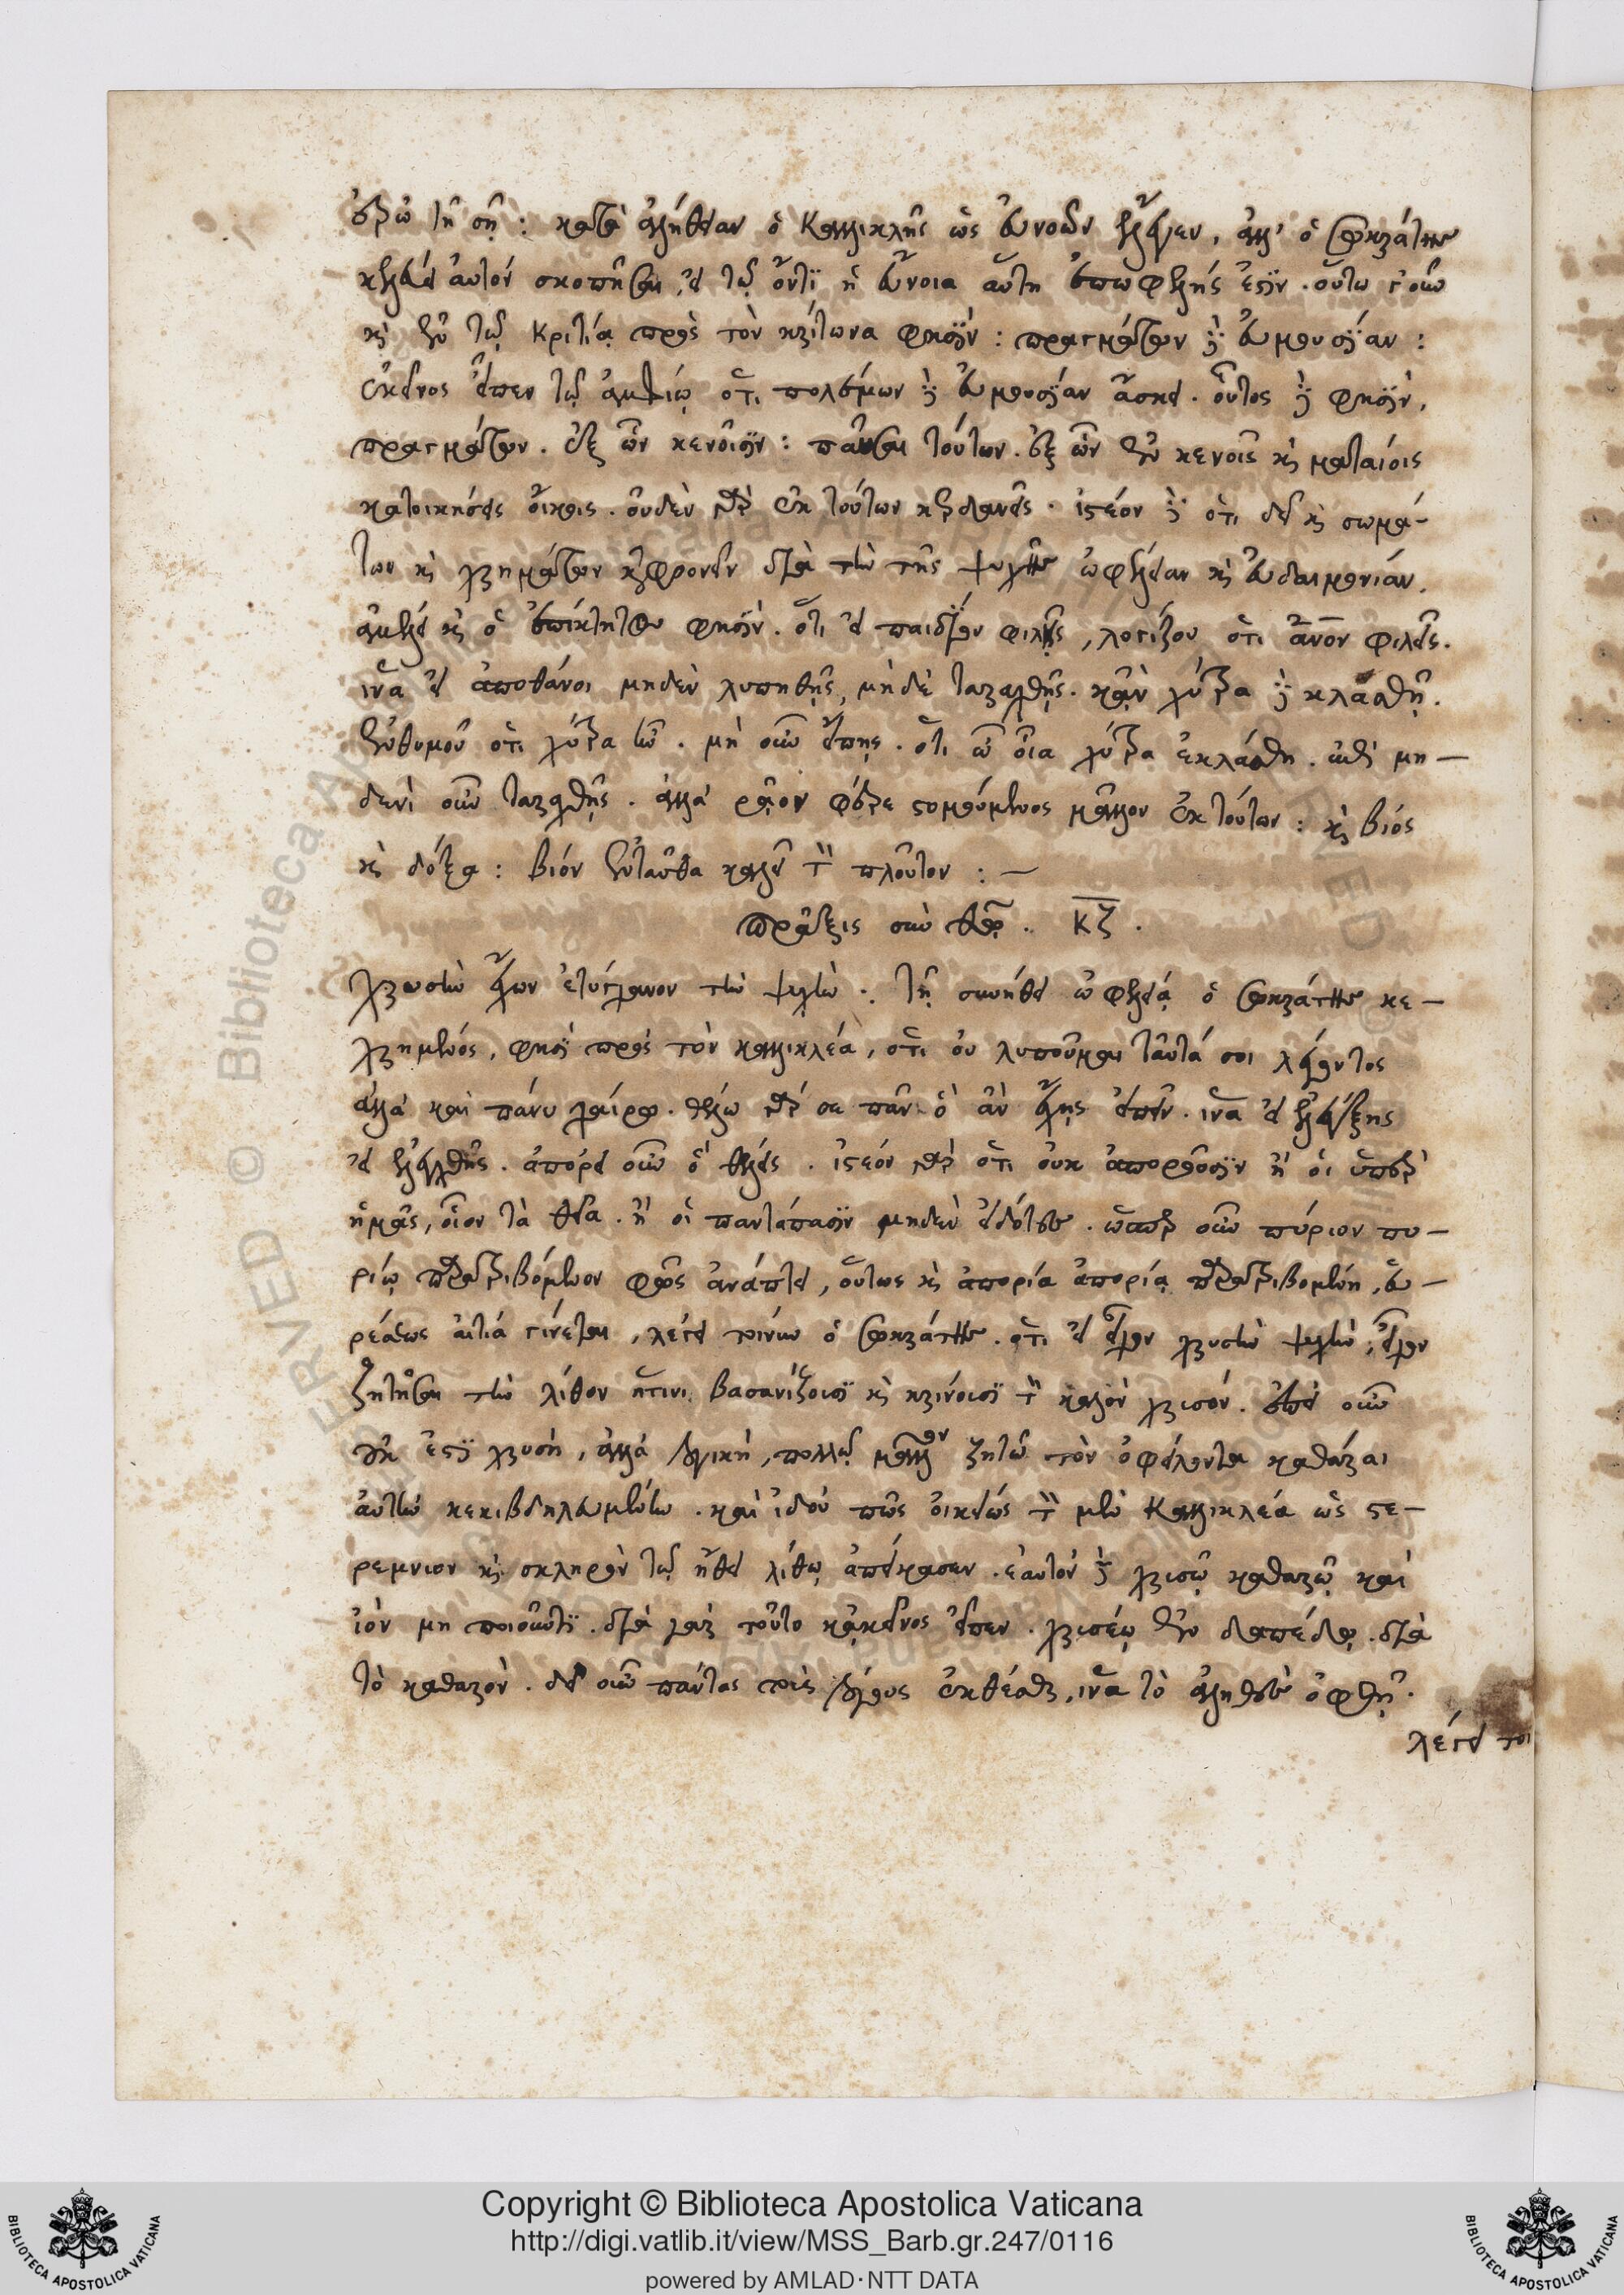 ἐρῶ τῇ σῇ : κατὰ ἀλήθειαν ὁ Καλλικλῆς ὡς εὐνοῶν ἔλεγεν, ἀλλ' ὁ Σωκράτης
κελεύει αὐτὸν σκοπῆσαι, εἰ τῷ ὄντι ἡ εὔνοια αὕτη ἐπωφελής ἐστιν. οὕτω γοῦν
καὶ ἐν τῷ Κριτίᾳ πρὸς τὸν κρίτωνα φησίν : πραγμάτων δὲ εὐμουσίαν :
ἐκεῖνος εἶπεν τῷ ἀμφίῳ ὅτι πολέμων δὲ εὐμουσίαν ἄσκει. οὗτος δὲ φησὶν,
πραγμάτων. ἐξ ὧν κενοῖσιν : παῦσαι τούτων. ἐξ ὧν ἐν κενοῖς καὶ ματαίοις
κατοικήσεις οἴκοις. οὐδὲν γὰρ ἐκ τούτων κερδανεῖς. ἰστέον δὲ ὅτι δεῖ καὶ σωμά-
των καὶ χρημάτων καταφρονεῖν διὰ τὴν τῆς ψυχῆς ὠφέλειαν καὶ εὐδαιμονίαν.
ἀμέλει καὶ ὁ ἐπίκτητος φησὶν. ὅτι εἰ παιδίον φιλῇς, λογίζου ὅτι ἄνον φιλεῖς.
ἵνα εἰ ἀποθάνοι μηδὲν λυπηθῇς, μὴδὲ ταραχθῇς. κἂν χύτρα δὲ κλασθῇ.
ἐνθυμοῦ ὅτι χύτρα ἦν. μὴ οὖν εἴπῃς. ὅτι ὢ οἵα χύτρα ἐκλάσθη. ἐπὶ μη-
δενὶ οὖν ταραχθῇς. ἀλλὰ ῥᾷον φέρε στομούμενος μᾶλλον ἐκ τούτων : καὶ βιός
καὶ δόξα : βιόν ἐνταῦθα καλεῖ τὸν πλοῦτον : —
πρᾶξις σὺν θεῷ. κζ.
χρυσῆν ἔχων ἐτύγχανον τὴν ψυχὴν : τῇ συνήθει ὠφελείᾳ ὁ Σωκράτης κε-
χρημένος, φησὶ πρὸς τὸν καλλικλέα, ὅτι οὐ λυποῦμαι ταῦτά σοι λέγοντος
ἀλλὰ καὶ πάνυ χαίρω. θέλω γάρ σε πᾶν ὃ ἂν ἔχῃς εἰπεῖν. ἵνα εἰ ἐλέγξῃς
εἰ ἐλεγχθῇς. ἀπόρει οὖν ὃ θέλεις. ἰστέον γὰρ ὅτι οὐκ ἀποροῦσιν ἢ οἱ ὑπὲρ
ἡμᾶς, οἷον τὰ θεῖα. ἢ οἱ παντάπασιν μηδὲν εἰδότες. ὥσπερ οὖν πύριον πυ-
ρίῳ παρατριβόμενον φῶς ἀνάπτει, οὕτως καὶ ἀπορία ἀπορίᾳ παρατριβομένη, εὑ-
ρέσεως αἰτία γίνεται, λέγει τοίνυν ὁ Σωκράτης. ὅτι εἰ εἶχον χρυσῆν ψυχὴν, εἶχον
ζητῆσαι τὴν λίθον ᾗτινι βασανίζουσι καὶ κρίνουσι τὸν καλὸν χρυσόν. ἐπεὶ οὖν
οὐκ ἔστι χρυσῆ, ἀλλὰ λογικὴ, πολλῷ μᾶλλον ζητῶ τὸν ὀφείλοντα καθάραι
αὐτὴν κεκιβδηλευμένην. καὶ ἰδοὺ πῶς οἰκείως τὸν μὲν Καλλικλέα ὡς στε-
ρεμνιον καὶ σκληρὸν τῷ ἤθει λίθῳ ἀπείκασεν. ἑαυτὸν δὲ χρυσῷ καθαρῷ καὶ
ἰὸν μη ποιοῦντι. διὰ γὰρ τοῦτο κἀκεῖνος εἶπεν. χρυσέῳ ἐν δαπέδῳ. διὰ
τὸ καθαρὸν. δεῖ οὖν πάντας τοὺς λόγους ἐκθέσθαι, ἵνα τὸ ἀληθὲς ὀφθῇ.
λέγει τοι
Copyright © Biblioteca Apostolica Vaticana
http://digi.vatlib.it/view/MSS_Barb.gr.247/0116
powered by AMLAD·NTT DATA